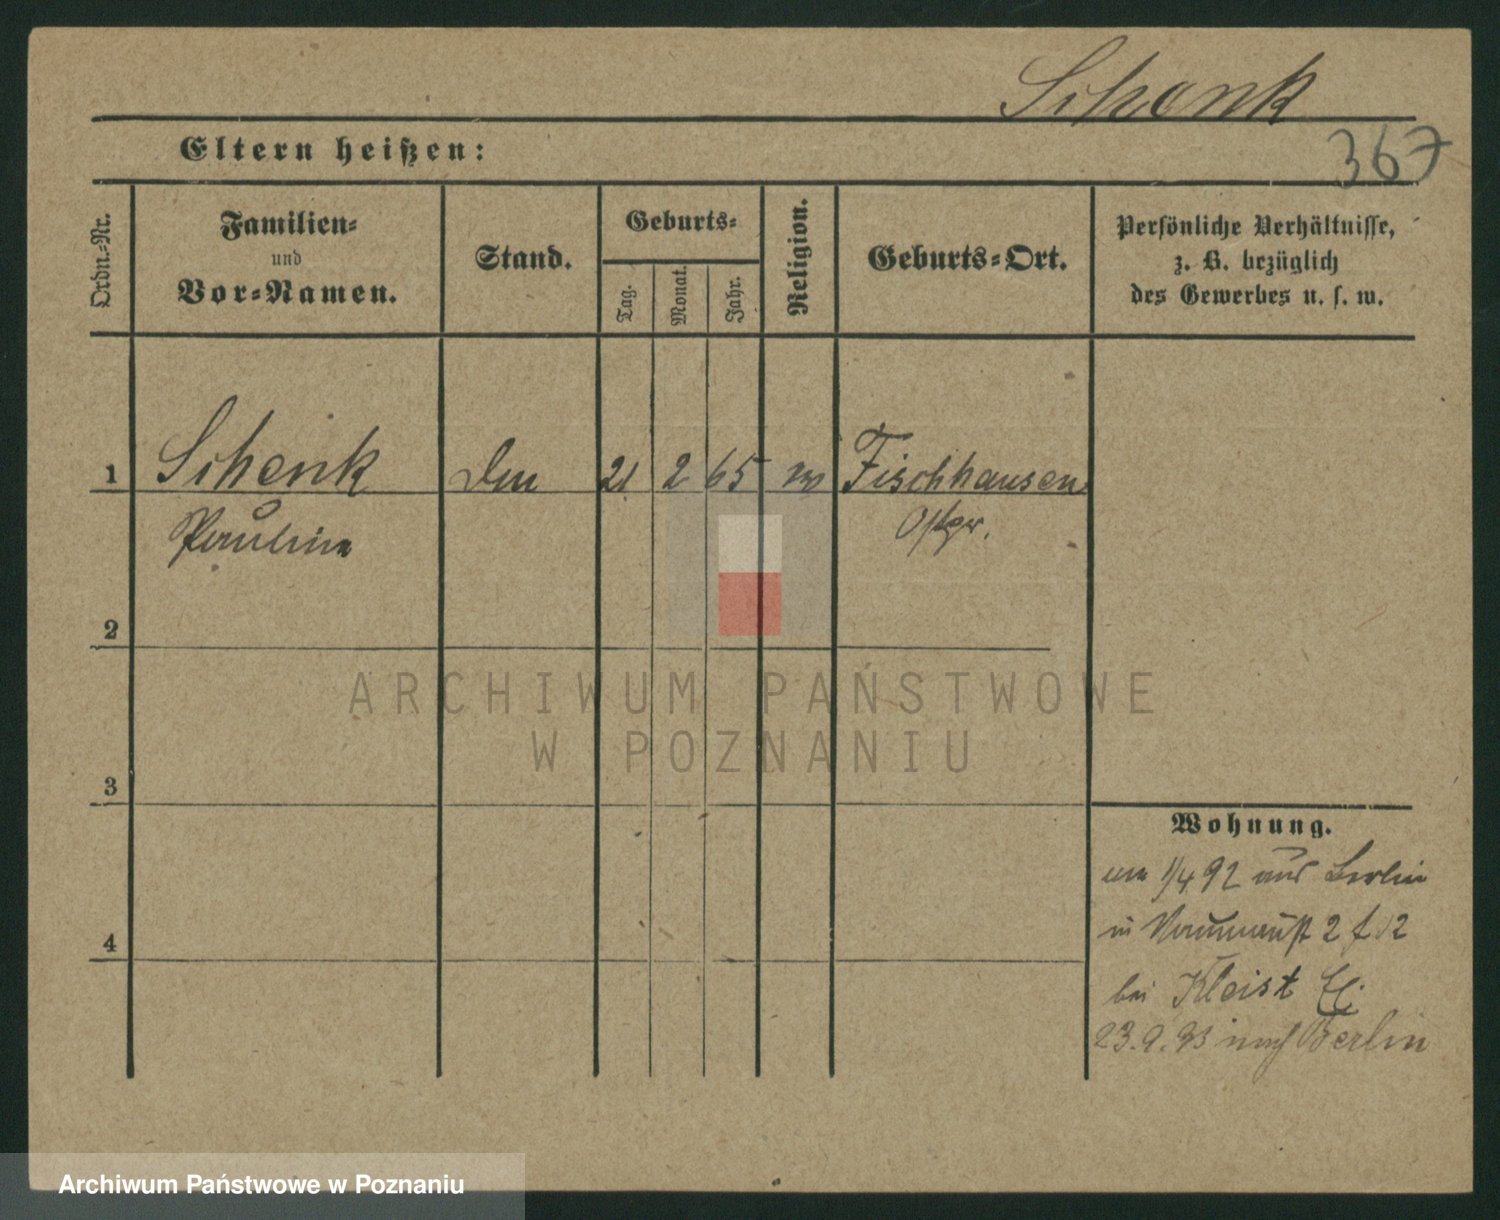 Schenk
367
Eltern heißen:
Ordn.-Nr.
Familien-
und
Vor-Namen.
Stand.
Geburts-
Tag.
Monat.
Jahr.
Religion.
Geburts-Ort.
Persönliche Verhältnisse,
z. B. bezüglich
des Gewerbes u. s. w.
1 Schenk 21 2 65 Fischhausen
Pauline Ostpr.
2
3
4
Wohnung.
1/4 92 aus Berlin
in 2
bei Kleist
23.9.93 nach Berlin
ARCHIWUM PAŃSTWOWE
W POZNANIU
Archiwum Państwowe w Poznaniu